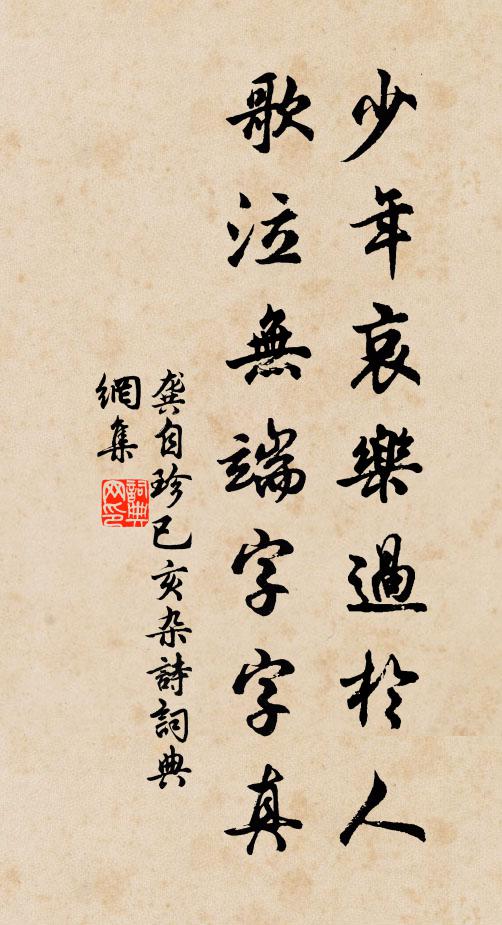 少年哀樂過於人
歌泣無端字字真
龔自珍己亥杂詩詞典
網集
詞典
网印